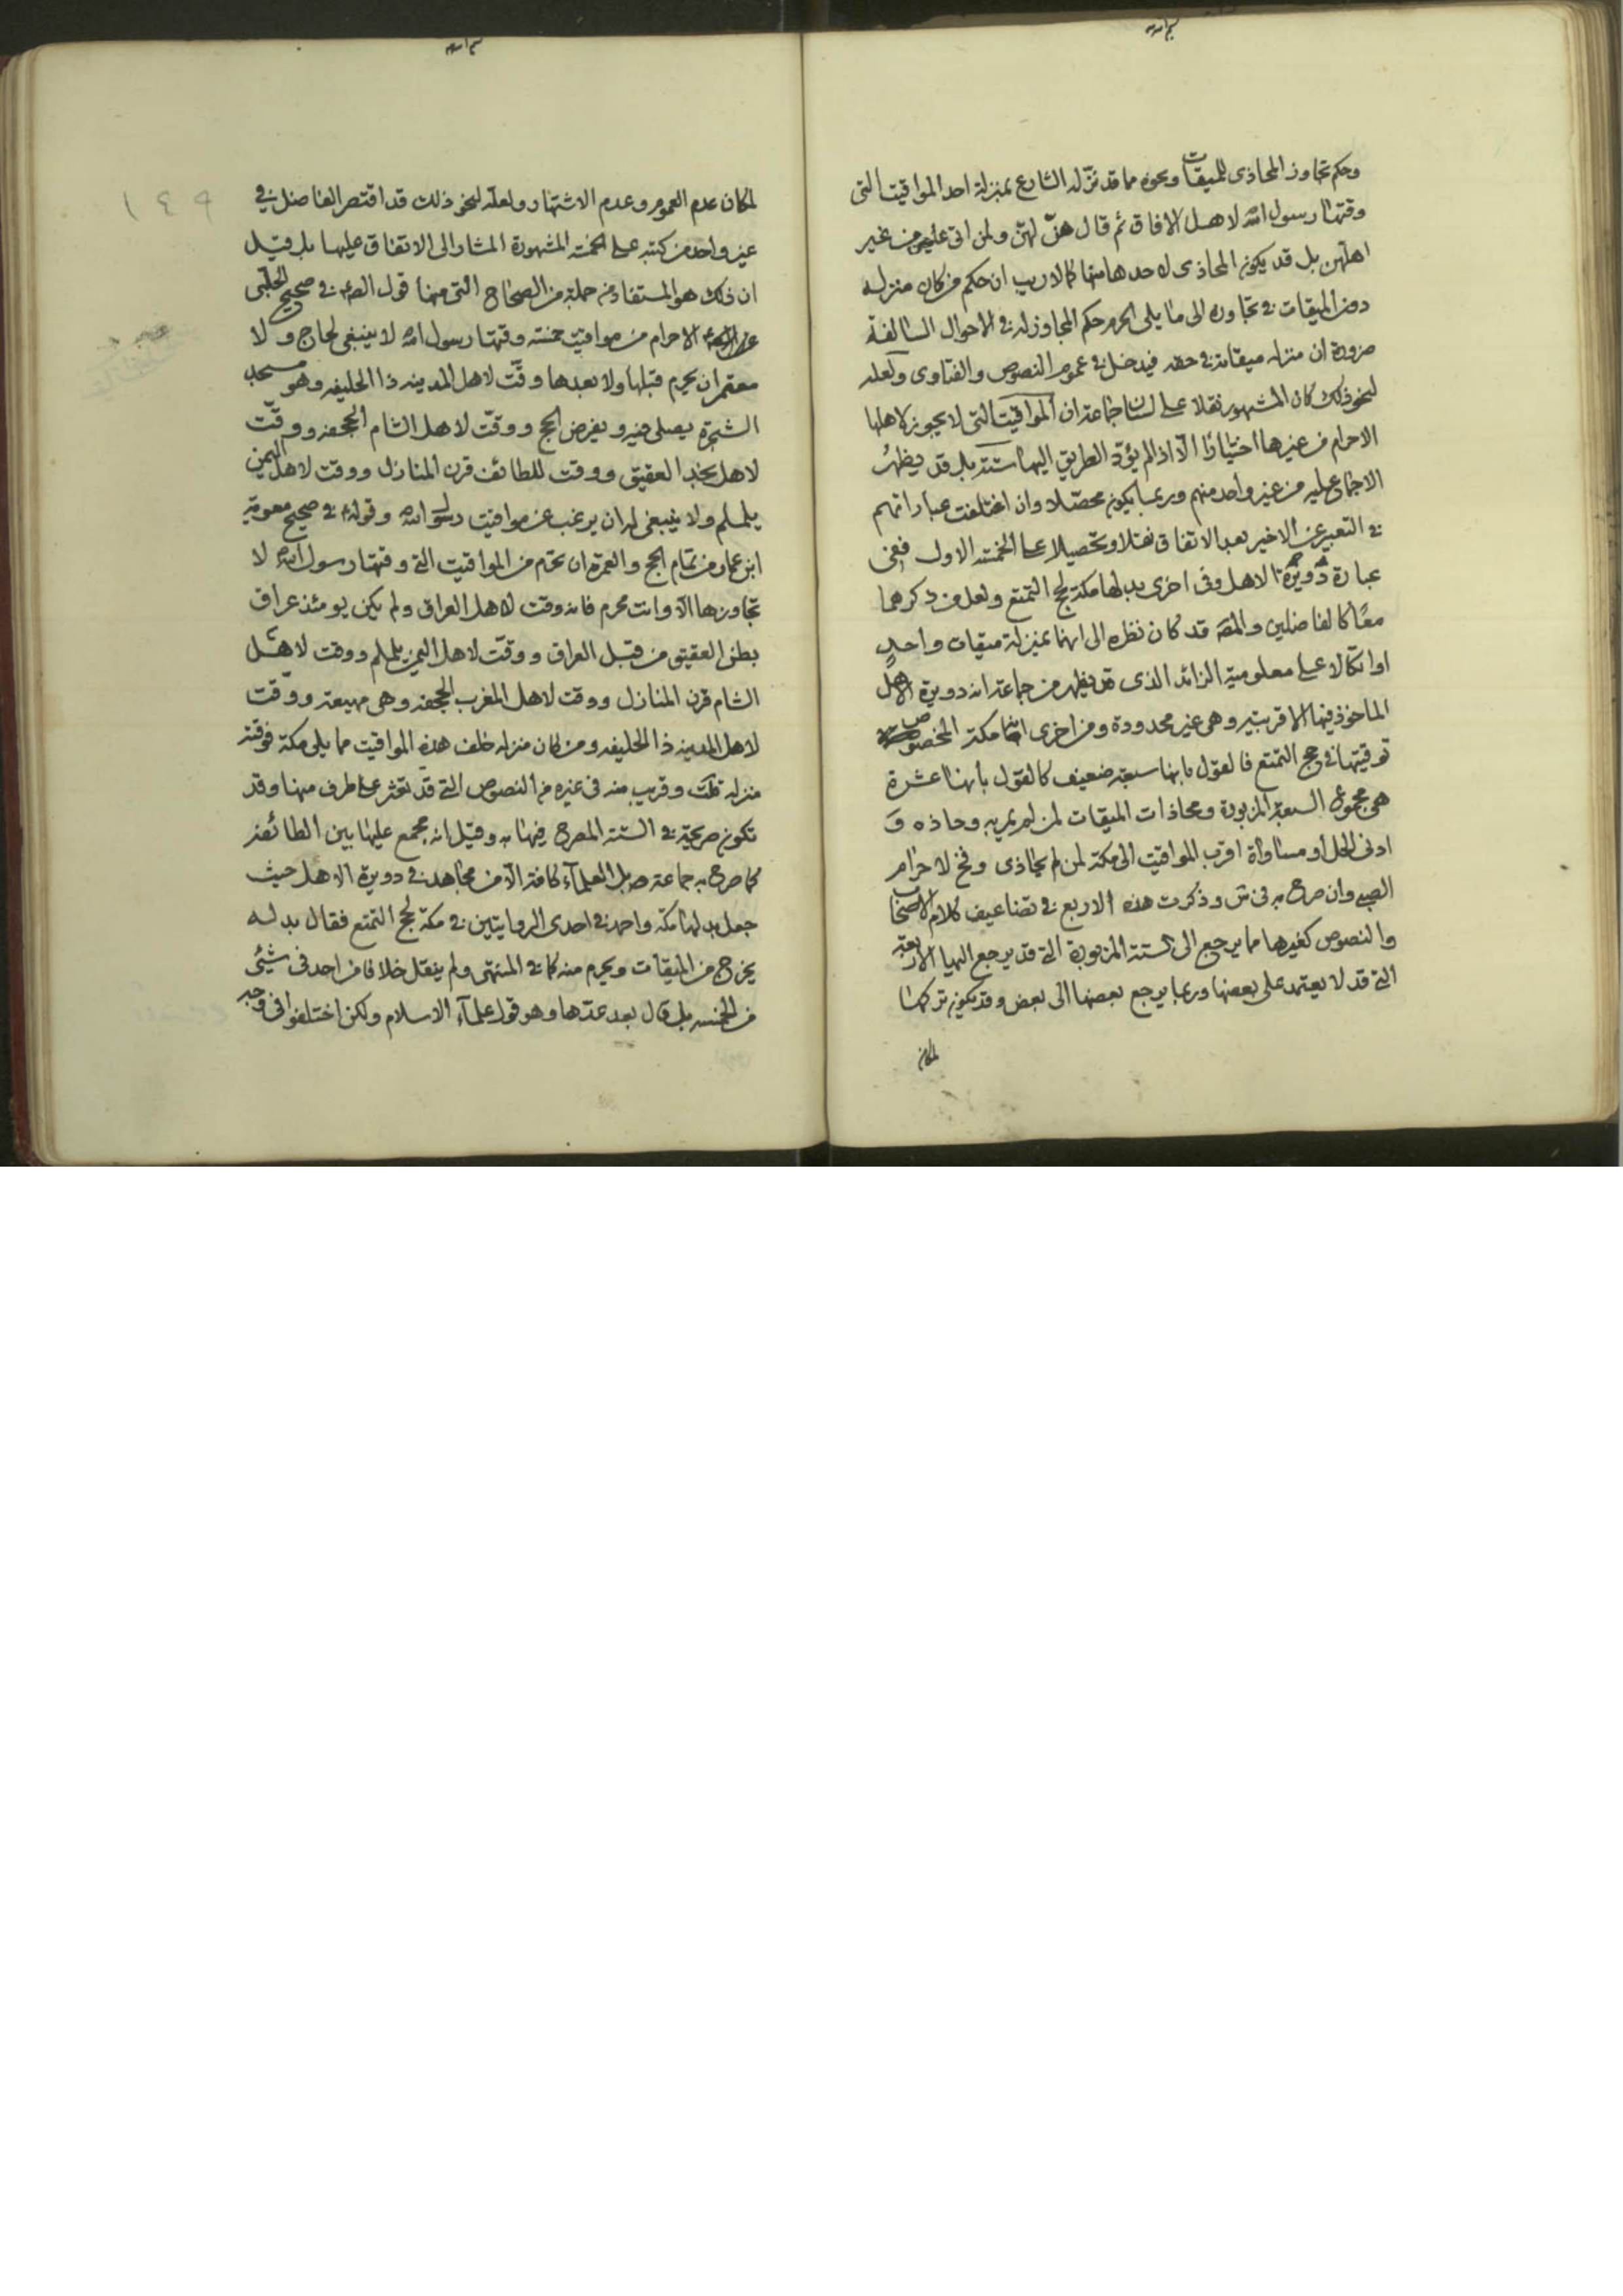 وحكم تجاوز المحاذى للميقات ونحوه مما قد نزّله الشارع بمنزلة احد المواقيت التى
وقتها رسول الله لاهل الافاق ثم قال هنّ لهنّ ولمن اتى عليهن من غير
اهلهن بل قد يكون المحاذى لاحدها منها كما لا ريب ان حكم من كان منزله
دون الميقات فى تجاوزه الى ما يلى الحرم حكم المجاوز له فى الاحوال السالفة
ضرورة ان منزله ميقاته فى حقه فيدخل فى عموم النصوص والفتاوى ولعله
لنحو ذلك كان المشهور نقلا على لسان جماعة ان المواقيت التى لا يجوز لاهلها
الاحرام من غيرها اختيارا الا اذا لم يؤدّ الطريق اليها ستة بل قد يظهر
الاجماع عليه من غير واحد منهم وربما يكون محصّلا وان اختلفت عباراتهم
فى التعبير عن الاخير بعد الاتفاق نقلا وتحصيلا على الخمسة الاول ففى
عبارة دويرة الاهل وفى اخرى بدلها مكة لحج التمتع ولعل من ذكرهما
معًا كالفاضلين والمصه قد كان نظره الى انهما بمنزلة ميقات واحد
او اتكالا على معلومية الزائد الذى قد يظهر من جماعة انه دويرة الاهل
الماخوذ فيها الاقربيه وهى غير محدودة ومن اخرى انها مكة المخصوص
توقيتها فى حج التمتع فالقول بانها سبعة ضعيف كالقول بانها عشرة
هى مجموع السبعة المزبورة ومحاذات الميقات لمن لم يمر به وحاذه و
ادنى الحل او مساواة اقرب المواقيت الى مكة لمن لم يحاذى وفخ لاحرام
الصبى وان صرح به فى ش وذكرت هذه الاربع فى تضاعيف كلام الاصحاب
والنصوص كغيرها مما يرجع الى الستة المزبورة التى قد يرجع اليها الاربعة
التى قد لا يعتمد على بعضها وربما يرجع بعضها الى بعض وقد يكون تركها
لمكان
١٤٩
لمكان عدم العموم وعدم الاشتهار ولعله لنحو ذلك قد اقتصر الفاضل فى
غير واحد من كتبه على الخمسة المشهورة المشار الى الاتفاق عليها بل قيل
ان ذلك هو المستفاد من جملة من الصحاح التى منها قول الصه فى صحيح الحلبى
الاحرام من مواقيت خمسة وقتها رسول الله لا ينبغى لحاج ولا
معتمر ان يحرم قبلها ولا بعدها وقّت لاهل المدينه ذا الحليفه وهو مسجد
الشجرة يصلى فيه ويفرض الحج ووقّت لاهل الشام الجحفه ووقّت
لاهل نجد العقيق ووقت للطائف قرن المنازل ووقت لاهل اليمن
يلملم ولا ينبغى لمن ان يرغب عن مواقيت رسول الله وقوله فى صحيح معوية
ابن عمار من تمام الحج والعمرة ان تحرم من المواقيت التى وقتها رسول الله لا
تجاوزها الا وانت محرم فانه وقت لاهل العراق ولم يكن يومئذ عراق
بطن العقيق من قبل العراق ووقّت لاهل اليمن يلملم ووقت لاهل
الشام قرن المنازل ووقت لاهل المغرب الجحفه وهى مهيعة ووقّت
لاهل المدينه ذا الحليفه ومن كان منزله خلف هذه المواقيت مما يلى مكة فوقته
منزله قلت وقريب منه فى غيره من النصوص التى قد تعثر على طرف منها وقد
تكون صريحة فى الستة المصرح فيها به وقيل انه مجمع عليها بين الطائفه
كما صرح به جماعة بل العلماء كافة الا من مجاهد فى دويرة الاهل حيث
جعل بدلها مكة واحمد فى احدى الروايتين فى مكة لحج التمتع فقال بدله
يخرج من الميقات ويحرم منه كما فى المنتهى ولم ينقل خلافا من احد فى شئى
من الخمسه بل قال بعد عدّها وهو قول علماء الاسلام ولكن اختلفوا فى وجه